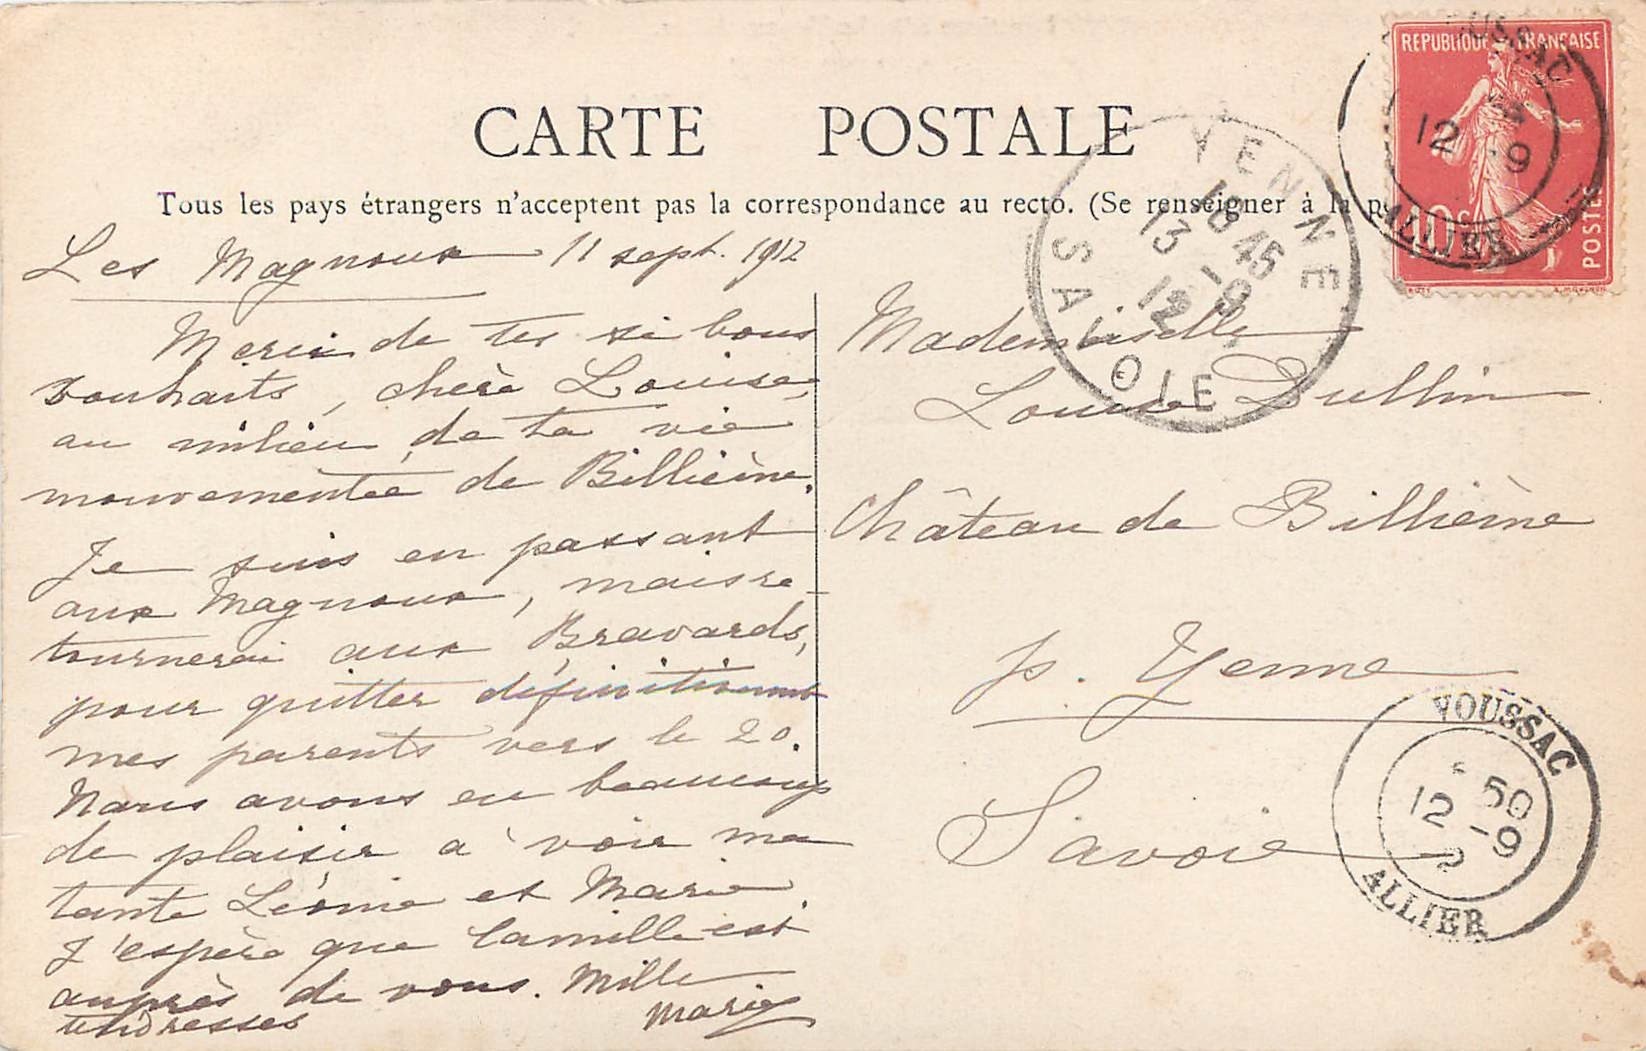 CARTE POSTALE
Tous les pays étrangers n'acceptent pas la correspondance au recto. (Se renseigner à la p
Les Magnoux 11 sept. 1912
Merci de tes si bons
souhaits, chère Louise,
au milieu de ta vie
mouvementée de Billième.
Je suis en passant
aux Magnoux, mais re-
tournerai aux Bravards,
pour quitter définitivement
mes parents vers le 20.
Nous avons eu beaucoup
de plaisir à voir ma
tante Léonie et Marie.
J'espère que Camille est
auprès de vous. Mille
tendresses Marie
Mademoiselle
Louise Dullin
Château de Billième
p. Yenne
Savoie
REPUBLIQUE FRANÇAISE
10c POSTES
USSAC
12 -9
ALLIER
YENNE
18 45
13 -9
12
SAVOIE
VOUSSAC
50
12 -9
12
ALLIER